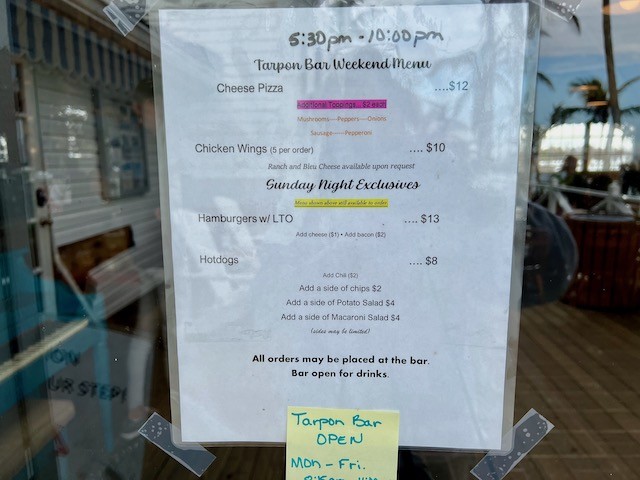 5:30pm - 10:00pm
Tarpon Bar Weekend Menu
Cheese Pizza ....$12
Additional Toppings... $2 each
Mushrooms----Peppers----Onions
Sausage------Pepperoni
Chicken Wings (5 per order) .... $10
Ranch and Bleu Cheese available upon request
Sunday Night Exclusives
Menu shown above still available to order
Hamburgers w/ LTO .... $13
Add cheese ($1) • Add bacon ($2)
Hotdogs .... $8
Add Chili ($2)
Add a side of chips $2
Add a side of Potato Salad $4
Add a side of Macaroni Salad $4
(sides may be limited)
All orders may be placed at the bar.
Bar open for drinks.
Tarpon Bar
OPEN
Mon - Fri.
UR STEP!